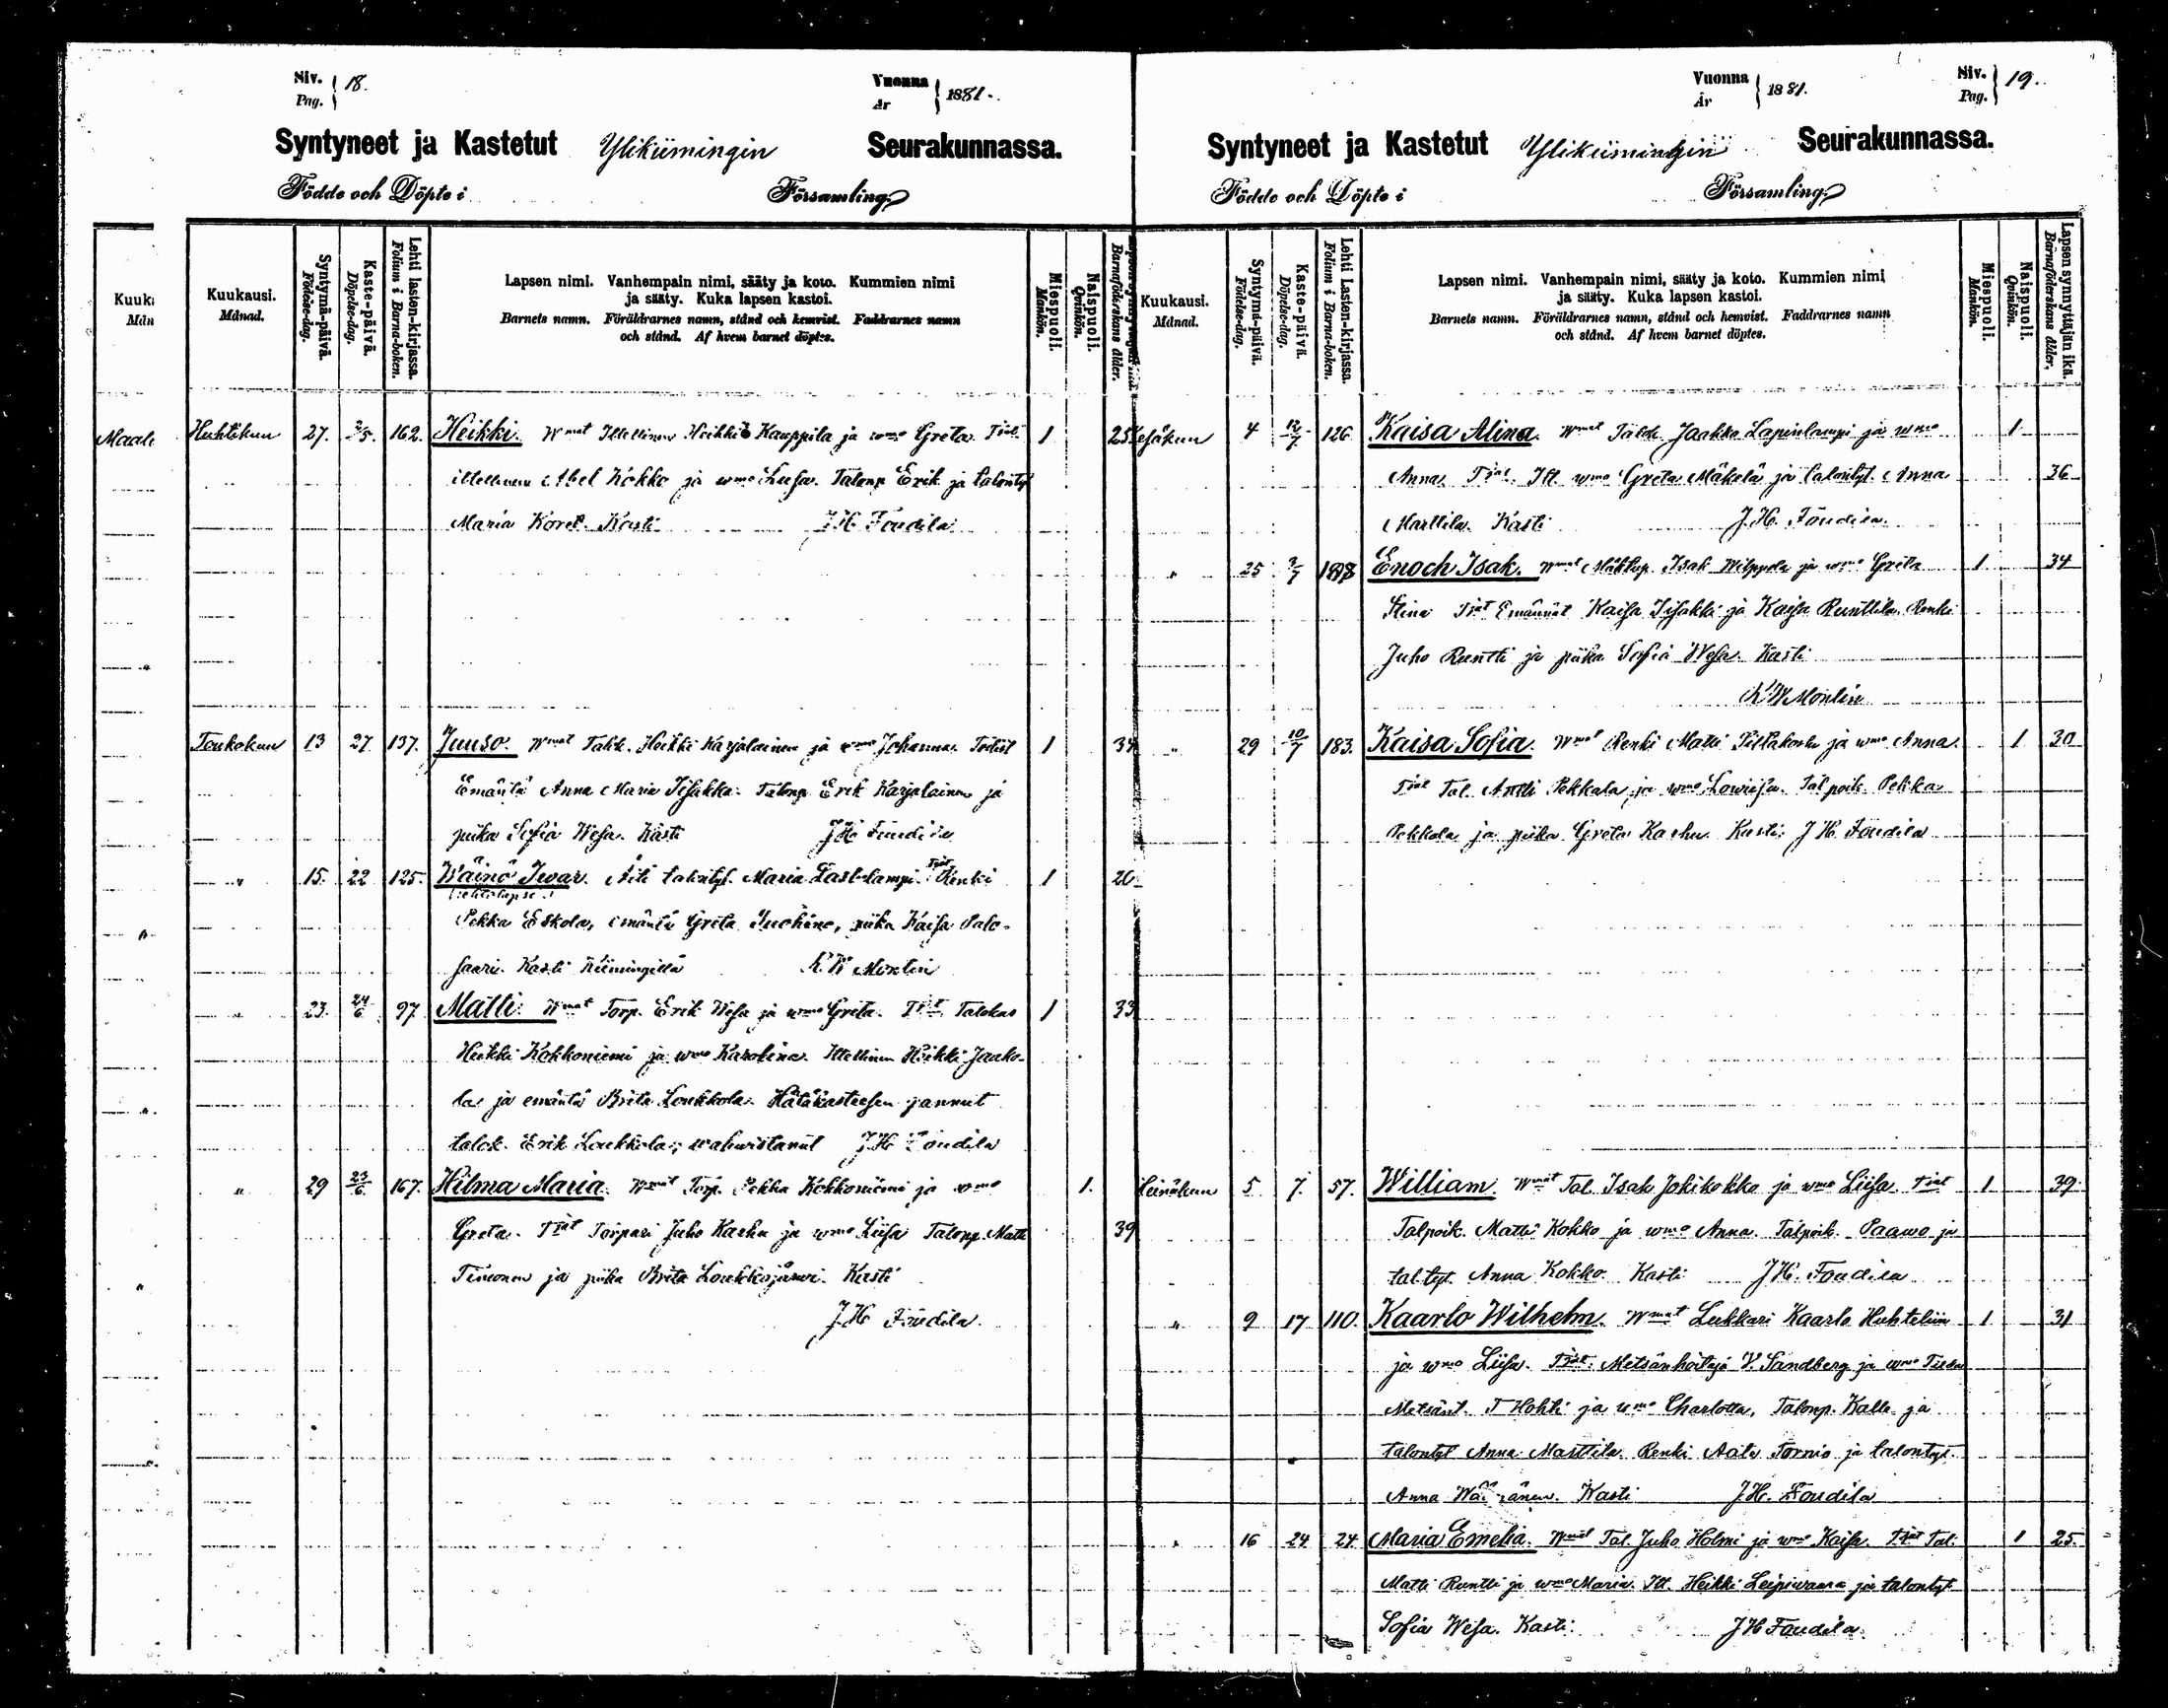 Niv. Pag. 18. Vuonna År 1881.
Syntyneet ja Kastetut Ylikiimingin Seurakunnassa.
Födde och Döpte i Församling.
Kuukausi. Månad. Syntymä-päivä. Födelse-dag. Kaste-päivä. Döpelse-dag. Lehti lasten-kirjassa. Folium i Barna-boken.
Lapsen nimi. Vanhempain nimi, sääty ja koto. Kummien nimi
ja sääty. Kuka lapsen kastoi.
Barnets namn. Föräldrarnes namn, stånd och hemvist. Faddrarnes namn
och stånd. Af hvem barnet döptes.
Miespuoli. Mankön. Naispuoli. Qvinkön. Barnaföderskans ålder.
Huhtikuu 27. 162. Heikki. Wmat Itellinen Heikki Kauppila ja wmo Greta. Tjat 1 25
itellinen Abel Kokko ja wmo Liisa. Talonp Erik ja talontyt
Maria Koret. Kasti J H Foudila
Toukokuu 13 27 137. Juuso. Wmat Talk. Heikki Karjalainen ja wmo Johanna. 1
Emäntä Anna Maria Iisakka. Talonp Erik Karjalainen ja
piika Sofia Wesa. Kasti J H Foudila
" 15. 22 125. Wäinö Iwar. Äiti talontyt. Maria Lamminlampi. Tjat Renki 1 26
Pekka Eskola, emäntä Greta piika Kaisa Palo-
saari. Kasti Kiimingillä K. W Montin
" 23. 24/6 97 Matti. Wmat Torp. Erik Wesa ja wmo Greta. Tjat 1 33
Heikki Kokkoniemi ja wmo Karolina. Itellinen Heikki Jaako-
la ja emäntä Brita Loukkola. Hätäkasteesen pannut
talok. Erik Loukkola; wahwistanut J H Foudila
" 29 23/6 167. Hilma Maria. Wmat Torp. Pekka Kokkoniemi ja wmo 1.
Greta. Tjat Torpari Juho Karhu ja wmo Liisa Talonp Matti 39
Timonen ja piika Brita Loukkojärwi. Kasti
J H Foudila.
Vuonna År 1881. Niv. Pag. 19.
Syntyneet ja Kastetut Ylikiimingin Seurakunnassa.
Födde och Döpte i Församling.
Kuukausi. Månad. Syntymä-päivä. Födelse-dag. Kaste-päivä. Döpelse-dag. Lehti Lasten-kirjassa. Folium i Barna-boken.
Lapsen nimi. Vanhempain nimi, sääty ja koto. Kummien nimi
ja sääty. Kuka lapsen kastoi.
Barnets namn. Föräldrarnes namn, stånd och hemvist. Faddrarnes namn
och stånd. Af hvem barnet döptes.
Miespuoli. Mankön. Naispuoli. Qvinkön. Lapsen synnyttäjän ikä. Barnaföderskans ålder.
Kesäkuu 4 12/7 126 Kaisa Alina. Wmat Jaakko Lapinlampi ja wmo 1
Anna. Tjat. Itt. wmo Greta Mäkelä ja talontyt. Anna 36
Marttila. Kasti J. H. Foudila.
" 25 3/7 Enoch Isak. Wmat Isak Wilppola ja wmo Greta 1 34
Stina Tjat Emännät Kaisa Iisakki ja Kaisa Runttila. Renki
Juho Runtti ja piika Sofia Wesa. Kasti
K W Montin
" 29 10/7 183. Kaisa Sofia. Wmat Renki Matti Siltakoski ja wmo Anna. 1 30
Tjat Tal. Antti Pekkala ja wmo Lowiisa. Talpoik. Pekka
Pekkala ja piika Greta Karhu. Kasti: J H. Foudila
Heinäkuu 5 7. 57. William. Wmat Tal. Isak Jokikokko ja wmo Liisa. Tjat 1 39.
Talpoik. Matti Kokko ja wmo Anna. Talpoik. Paawo ja
tal.tyt. Anna Kokko. Kasti J H. Foudila
" 9 17 110. Kaarlo Wilhelm. Wmat Lukkari Kaarlo Huhtelin 1 31
ja wmo Liisa. Tjat. Metsänhoitaja V. Sandberg ja wmo
Metsänt. T Hohti ja wmo Charlotta, Talonp. Kalle ja
talontyt Anna Marttila. Renki Tornio ja talontyt
Anna Kasti J H. Foudila
" 16 24 24 Maria Emelia. Wmat Tal. Juho Holmi ja wmo Kaisa. Tjat Tal. 1 25.
Matti Runtti ja wmo Maria. Itt. Heikki Leipiwaara ja talontyt
Sofia Wesa. Kasti: J H Foudila.